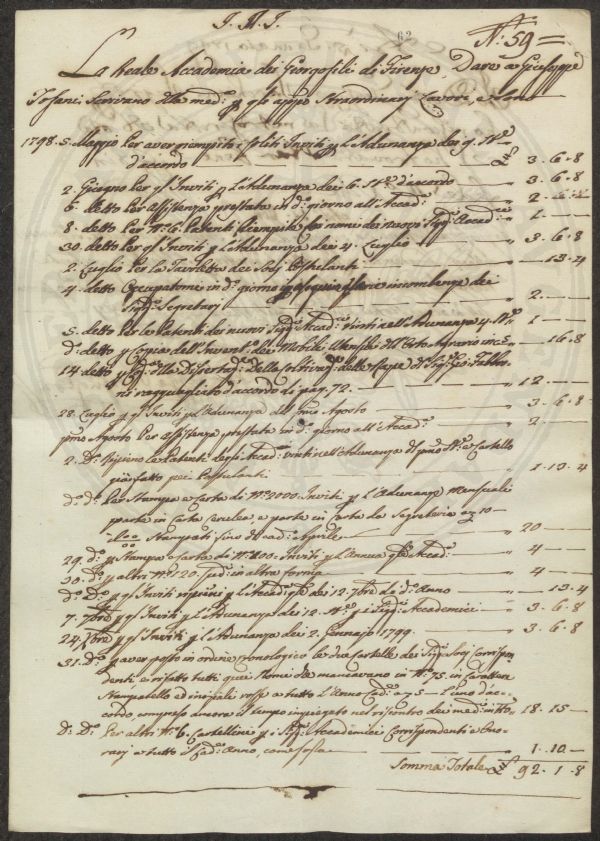 J. M. J.
62
N.° 59 =
La Reale Accademia dei Georgofili di Firenze Dare a Giuseppe
Tofani Scrivano della med.ª p gli app.° Straordinarj Lavori, e Sono
1798. 5. Maggio Per aver riempiti i soliti Inviti p L'Adunanza dei 9. d'accordo 3. 6. 8
2. Giugno Per gl'Inviti p L'Adunanza dei 6. d'accordo 3. 6. 8
6. detto Per assistenza prestata in d.° giorno all'Accad.ª 2.
8. detto Per N.° 6. Patenti riempite dei nomi dei nuovi Sig.ri Accad.ci 1. —
30. detto Per gl'Inviti p L'Adunanza dei 4. Luglio 3. 6. 8
2. Luglio Per la Tavoletta dei Socj Postulanti — 13. 4
4. detto Occupatomi in d.° giorno incombenze dei
Sig.ri Segretarj 2. —
5. detto Per le Patenti dei nuovi Sig.ri Accad.ci vinti nell'Adunanza 4. 1. —
D.° detto p Copia dell'Invent.° dei Mobili, Utensili dell'Orto Agrario — 16. 8
14. detto p della Dissertaz.e Della coltivaz.e delle Rape del Sig.re Gio: Fabbroni
ragguagliato d'accordo di pag. 72. 12. —
28. Luglio p gl'Inviti p L'Adunanza del Agosto 3. 6. 8
p.mo Agosto Per assistenza prestata in d.° giorno all'Accad.ª 2 —
2. D.° Riempiere le Patenti degli Accad.ci vinti nell'Adunanza del p.mo e Cartello
già fatto pei Postulanti 1. 13. 4
D.° d.° Per Stampa e Carta di N.° 2000. Inviti p L'Adunanze Mensuali
parte in Carta Cerulea, e parte in Carta da Segreteria a 10 —
Stampati fino dal cad.e Aprile 20 —
29. D.° p Stampa e Carta di N.° 400. Inviti p L'Annua Accad.ª 4 —
30. D.° p altri N.° 120. in altra forma 4 —
D.° D.° p gl'Inviti p L'Accad.ª dei 12. 7bre di d.° Anno — 13. 4
7. 7bre p gl'Inviti p L'Adunanza dei 12. p i Sig.ri Accademici 3. 6. 8
24. p gl'Inviti p L'Adunanza dei 2. Gennajo 1799. 3. 6. 8
31. D.° p aver posto in ordine cronologico le due Cartelle dei Sig.ri Socj Corrispondenti
e rifatto tutti quei Nomi che mancavano in N.° 75. in Carattere
Stampatello ed iniziali rosse a tutto L'Anno Cad.e a 5 — L'uno d'accordo,
compreso ancora il tempo impiegato nel riscontro dei med.mi 18. 15 —
D.° D.° Per altri N.° 6. Cartellini p i Sig.ri Accademici Corrispondenti e Onorarj
a tutto il cad.e Anno, come sopra 1. 10. —
Somma Totale 92. 1. 8